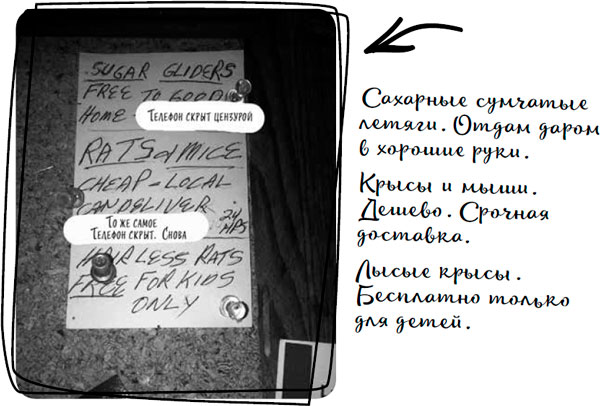 SUGAR GLIDERS
FREE TO GOOD
HOME -
ТЕЛЕФОН СКРЫТ ЦЕНЗУРОЙ
RATS & MICE
CHEAP - LOCAL
CAN DELIVER 24
HRS
ТО ЖЕ САМОЕ
ТЕЛЕФОН СКРЫТ. СНОВА
HAIRLESS RATS
FREE FOR KIDS
ONLY
Сахарные сумчатые
летяги. Отдам даром
в хорошие руки.
Крысы и мыши.
Дешево. Срочная
доставка.
Лысые крысы.
Бесплатно только
для детей.